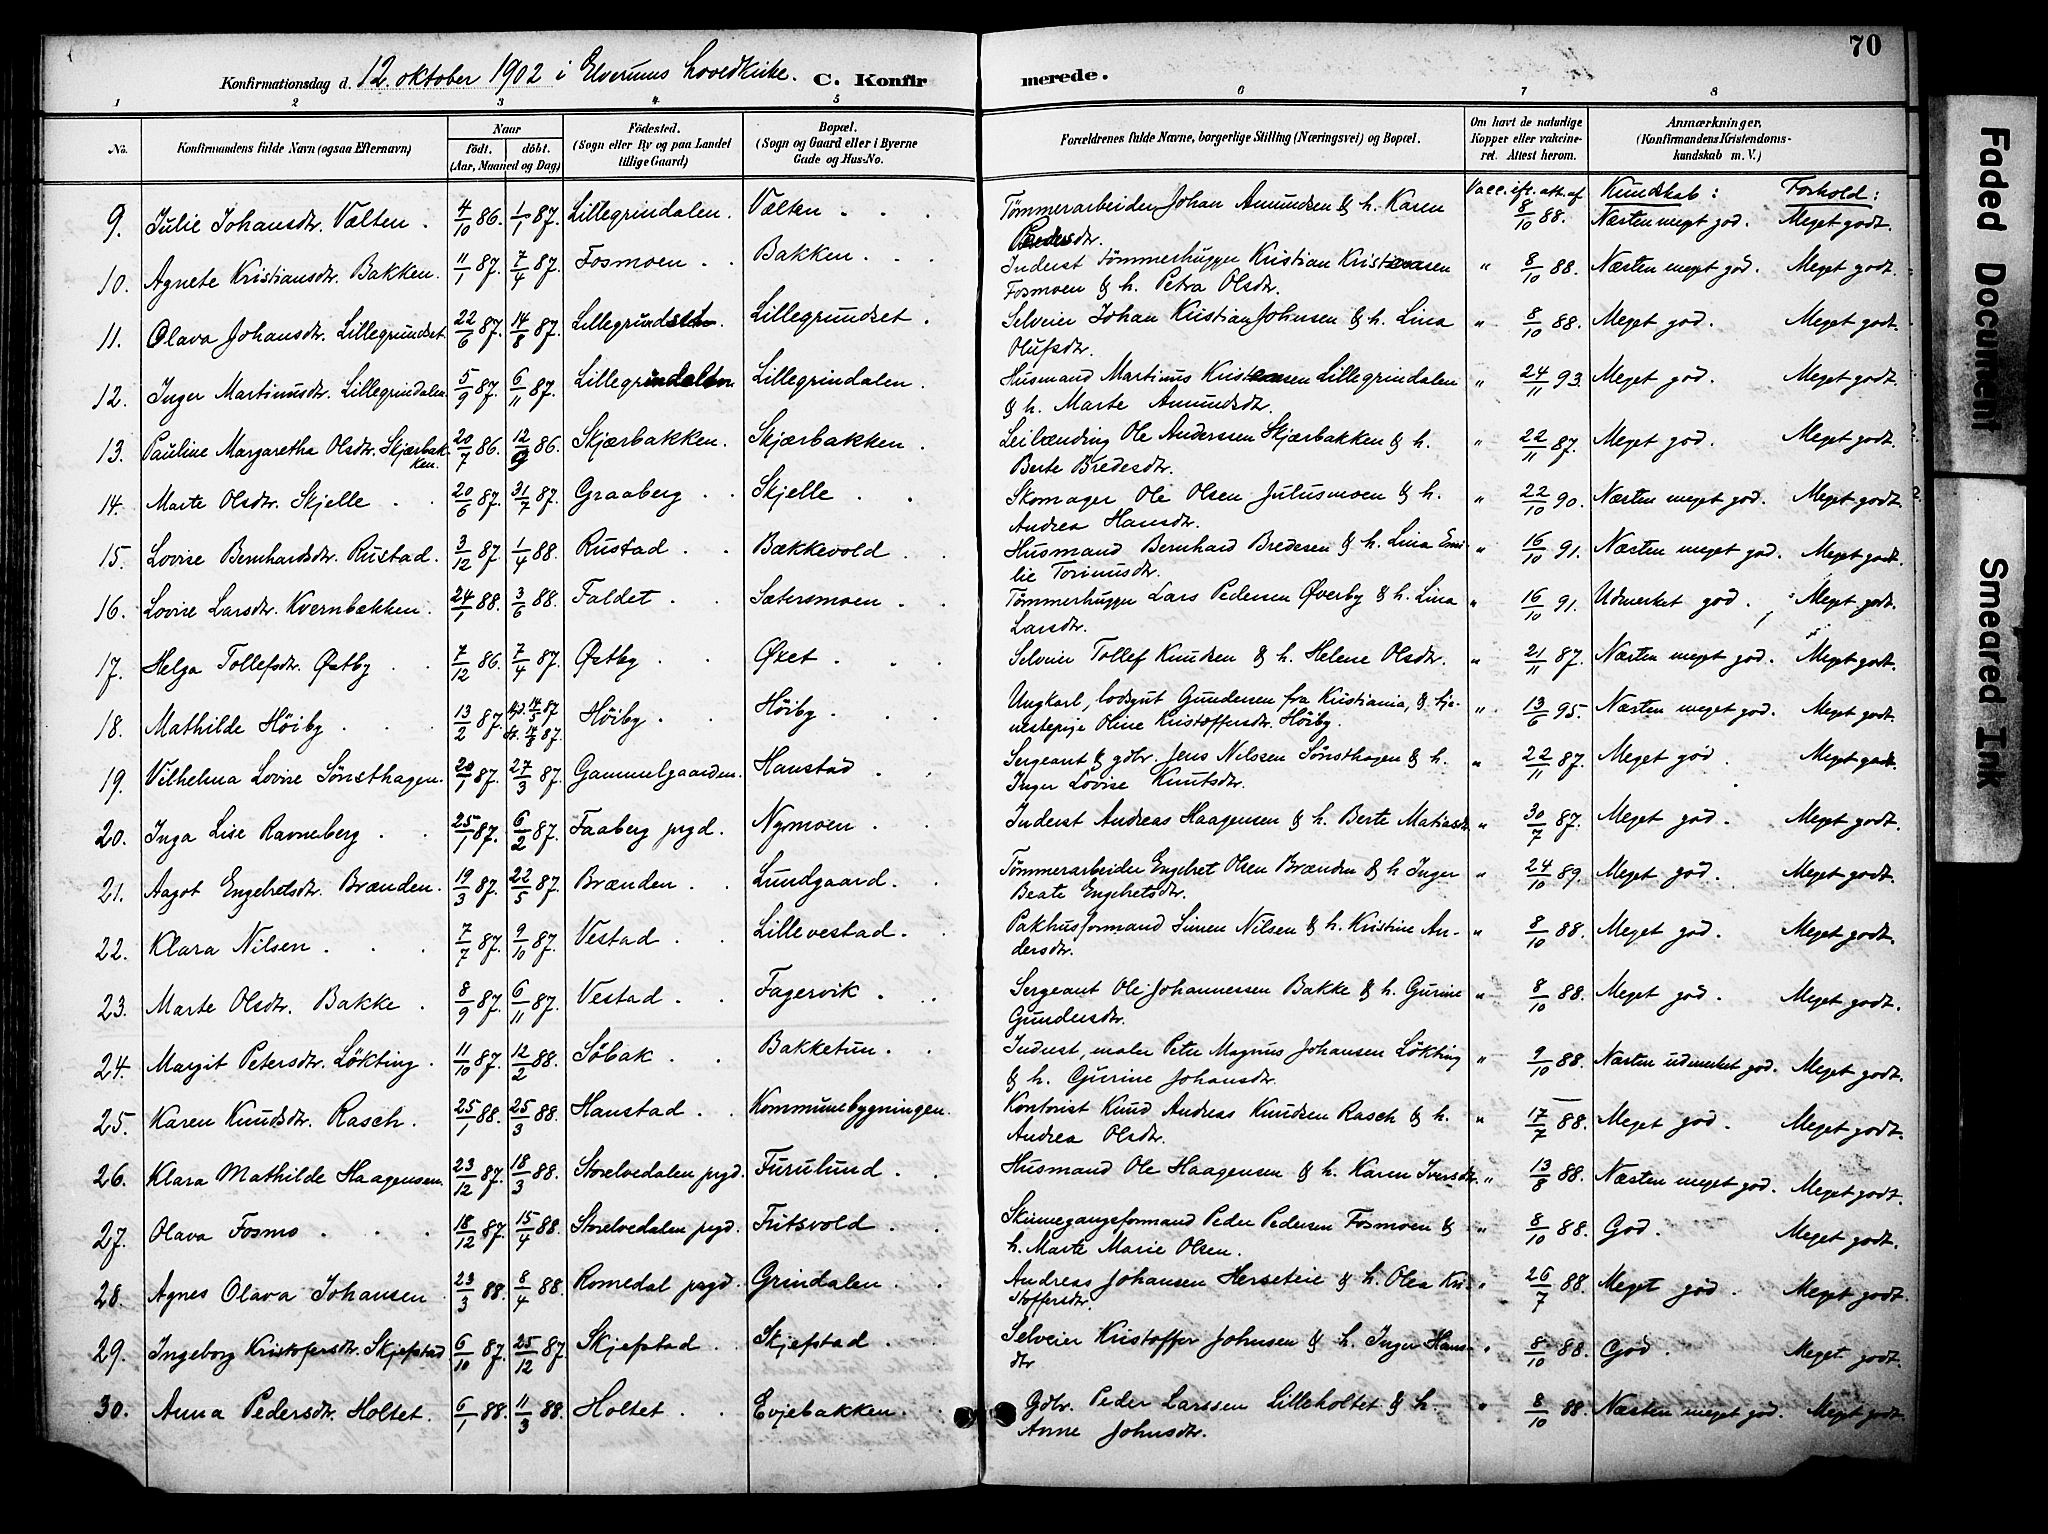 70
Konfirmationsdag d. 12. oktober 1902 i Elverums hovedkirke. C. Konfirmerede.
1 2 3 4 5 6 7 8
No. Konfirmandens fulde Navn (ogsaa Efternavn) Naar födt. döbt. (Aar, Maaned og Dag) Födested. (Sogn eller By og paa Landet tillige Gaard) Bopæl. (Sogn og Gaard eller i Byerne Gade og Hus-No. Forældrenes fulde Navne, borgerlige Stilling (Næringsvei) og Bopæl. Om havt de naturlige Kopper eller vakcineret. Attest herom. Anmærkninger, (Konfirmandens Kristendomskundskab m. V.)
Vacc. ift. att. af Kundskab: Forhold:
9. Julie Johansdtr. Vælten. 4/10 86. 1/1 87. Lillegrindalen. Vælten Tømmerarbeider Johan Amundsen & h. Karen 8/10 88. Næsten meget god. Meget godt.
Pedersdtr.
10. Agnete Kristiansdtr. Bakken. 11/1 87. 7/4 87. Fosmoen Bakken Inderst Tömmerhugger Kristian Kristiansen " 8/10 88. Næsten meget god. Meget godt.
Fosmoen & h. Petra Olsdtr.
11. Olava Johansdtr. Lillegrundset 22/6 87. 14/8 87. Lillegrundset. Lillegrundset. Selveier Johan Kristian Johnsen & h. Lina " 8/10 88. Meget god. Meget godt.
Olufsdtr.
12. Inger Martinusdtr. Lillegrindalen. 5/9 87. 6/11 87. Lillegrindalen Lillegrindalen. Husmand Martinus Kristensen Lillegrindalen " 24/11 93. Meget god. Meget godt.
& h. Marte Amundsdtr.
13. Pauline Margaretha Olsdtr. Skjærbakken. 20/7 86. 12/9 86. Skjærbakken. Skjærbakken. Leilænding Ole Anderssen Skjærbakken & h. " 22/11 87. Meget god. Meget godt.
Berte Bredesdtr.
14. Marte Olsdtr. Skjelle 20/6 87. 31/7 87. Graaberg Skjelle Skomager Ole Olsen Julusmoen & h. " 22/10 90. Næsten meget god. Meget godt.
Andrea Hansdtr.
15. Lovise Bernhardsdtr. Rustad. 3/12 87. 1/4 88. Rustad Bækkevold Husmand Bernhard Bredesen & h. Lina Emi- " 16/10 91. Næsten meget god. Meget godt.
lie Torinusdtr.
16. Lovise Larsdtr. Kvernbækken. 24/1 88. 3/6 88. Faldet Sætersmoen Tömmerhugger Lars Pedersen Øverby & h. Lina " 16/10 91. Udmerket god. Meget godt.
Larsdtr.
17. Helga Tollefsdtr. Østby 7/12 86. 7/4 87. Østby Øxet Selveier Tollef Knudsen & h. Helene Olsdtr. " 21/11 87. Næsten meget god. Meget godt.
18. Mathilde Höiby 13/2 87. 14/5 87 14/8 87. Höiby. Höiby. Ungkarl, lodsgut Gundersen fra Kristiania, & tje- " 13/6 95. Næsten meget god. Meget godt.
nestepige Oline Kristoffersdtr. Höiby.
19. Vilhelma Lovise Sønsthagen. 20/1 87. 27/3 87. Gammelgaarden. Hanstad Sergeant & gdbr. Jens Nilssen Sønsthagen & h. " 22/11 87. Meget god. Meget godt.
Inger Lovise Knutsdtr.
20. Inga Lise Ravneberg 25/1 87. 6/2 87. Faaberg prgd. Nymoen Inderst Andreas Haagensen & h. Berte Matiasdtr " 30/7 87. Meget god. Meget godt.
21. Aagot Engebretsdtr. Brænden. 19/3 87. 22/5 87 Brænden Lundgaard. Tömmerarbeider Engebret Olsen Brænden & h Inger " 24/10 89. Meget god. Meget godt.
Beate Engebretsdtr.
22. Klara Nilsen 7/7 87. 9/10 87. Vestad Lillevestad. Pakhusformand Simen Nilsen & h. Kristine An- " 8/10 88. Meget god. Meget godt.
dersdtr.
23. Marte Olsdtr. Bakke 8/9 87. 6/11 87. Vestad Fagervik Sergeant Ole Johannessen Bakke & h. Gurine " 8/10 88. Meget god. Meget godt.
Gundersdtr.
24. Margit Petersdtr. Lökting. 11/10 87. 12/2 88. Söbak Bakketun Inderst, maler Peter Magnus Johansen Lökting " 9/10 88. Næsten udmerket god. Meget godt.
& h. Gurine Johansdtr.
25. Karen Knudsdtr. Rasch. 25/1 88. 25/3 88. Hanstad Kommunebygningen. Kontorist Knud Andreas Knudsen Rasch & h. " 17/7 88. Meget god. Meget godt.
Andrea Olsdtr.
26. Klara Mathilde Haagensen. 23/12 87. 18/3 88. Storelvedalen prgd. Furulund Husmand Ole Haagensen & h. Karen Iversdtr. " 13/8 88. Næsten meget god. Meget godt.
27. Olava Fosmo 18/12 87. 15/4 88. Storelvedalen prgd. Fritsvold Skinnegangsformand Peder Pedersen Fosmoen & " 8/10 88. God. Meget godt.
h. Marte Marie Olsen.
28. Agnes Olava Johansen 23/3 88. 8/4 88. Romedal prgd. Grindalen Andreas Johansen Herseteie & h. Olea Kri- " 26/7 88. Meget god. Meget godt.
stoffersdtr.
29. Ingeborg Kristofersdtr. Skjefstad 6/10 87. 25/12 87. Skjefstad Skjefstad Selveier Kristoffer Johnsen & h. Inger Hans- " 8/10 88. God. Meget godt.
dtr
30. Anna Pedersdtr. Holtet. 6/1 88. 11/3 88. Holtet Evjebakken. Gdbr. Peder Larssen Lilleholtet & h. " 8/10 88. Næsten meget god. Meget godt.
Anne Johnsdtr.
Faded Document
Smeared Ink